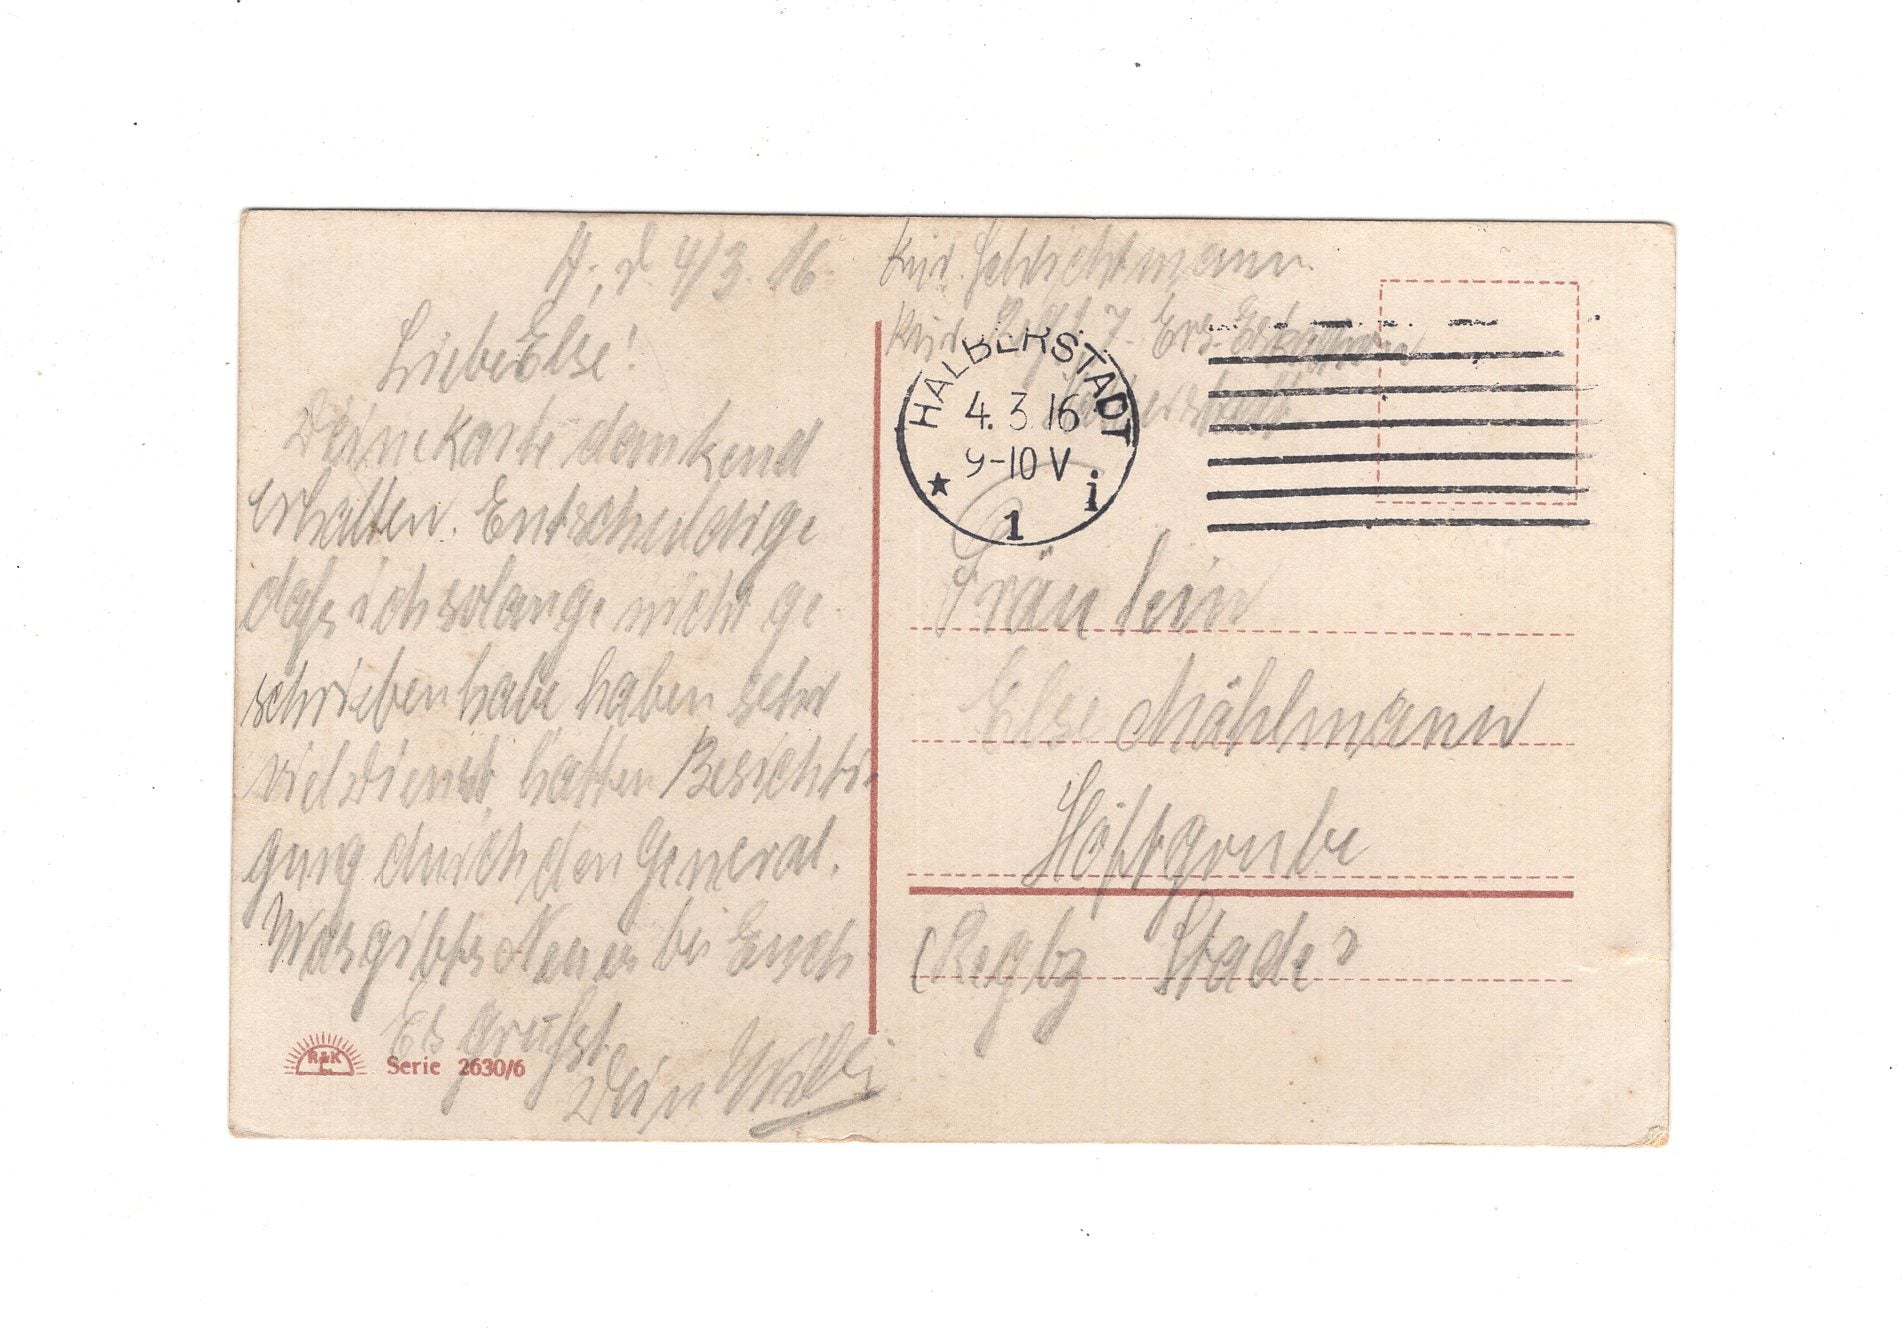 H, d. 4/3. 16.
Liebe Else!
Deine Karte dankend
erhalten. Entschuldige
daß ich solange nicht ge-
schrieben habe haben sehr
viel Dienst, hatten Besichti-
gung durch den General.
Was gibts Neues bei Euch
Es grüßt
Dein Willi
R&K
L
Serie 2630/6
Kür. Schlichtmann
Kür. Regt. 7. Ers. Eskadron
Halberstadt
HALBERSTADT
4. 3. 16
9-10 V
★ 1 i
Fräulein
Else Mählmann
Höftgrube
(Regbz Stade)